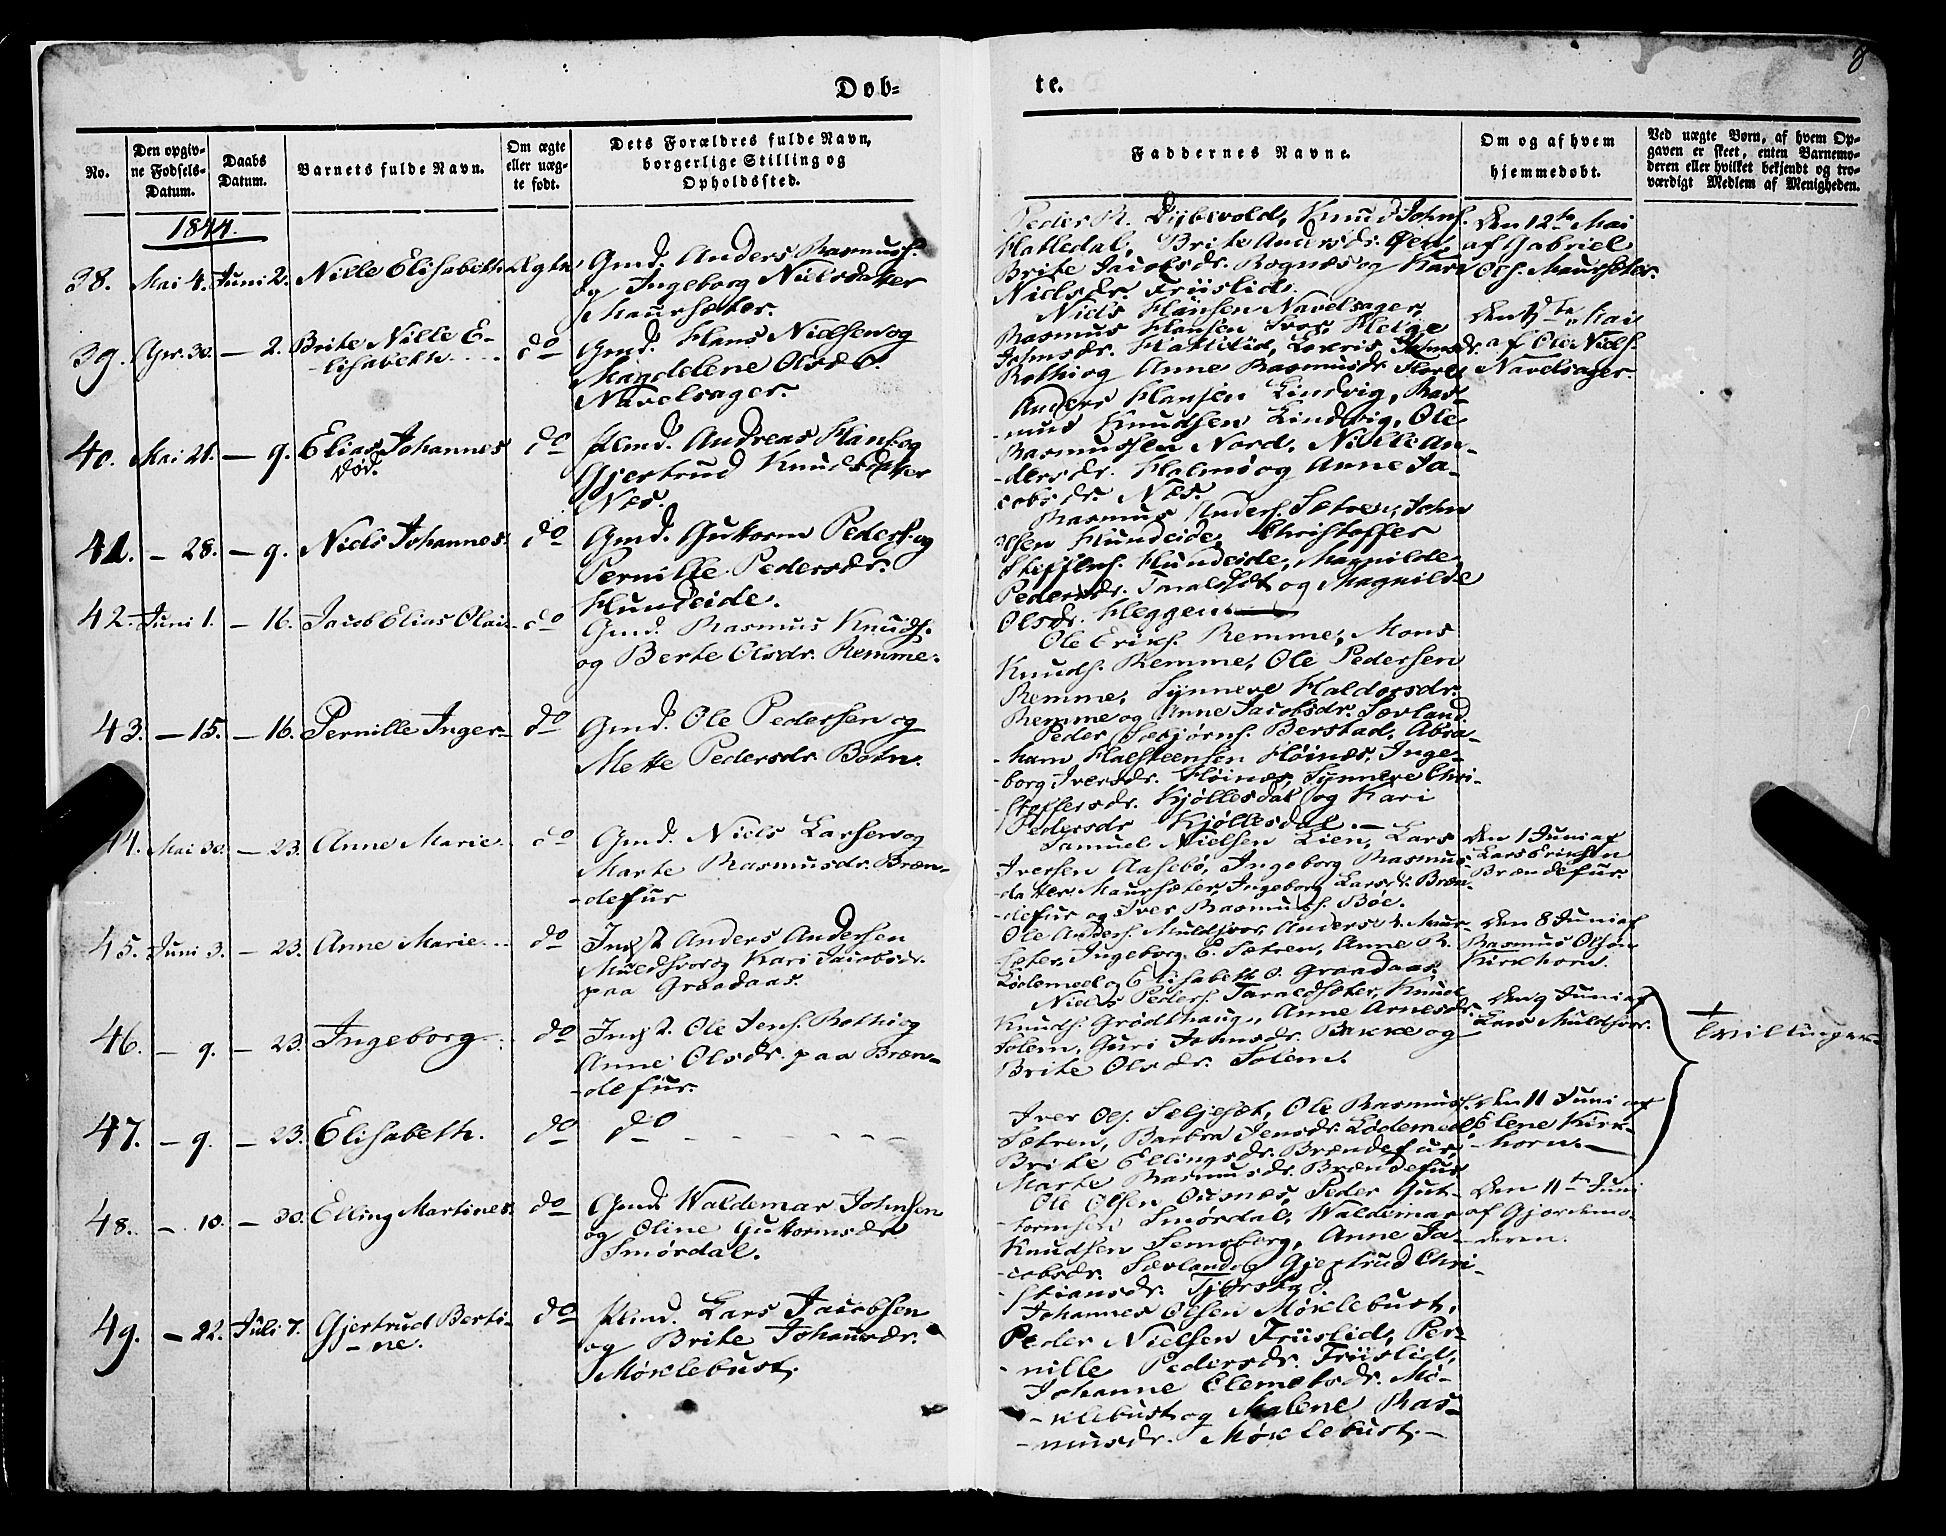 Døb-
te.
8
No.
Den opgiv-
ne Fødsels-
Datum.
Daabs
Datum.
Barnets fulde Navn.
Om ægte
eller uæg-
te født.
Dets Forældres fulde Navn,
borgerlige Stilling og
Opholdssted.
Faddernes Navne.
Om og af hvem
hjemmedøbt.
Ved uægte Børn, af hvem Op-
gaven er skeet, enten Barnemo-
deren eller hvilket bekjendt og tro-
værdigt Medlem af Menigheden.
1844.
38. Mai 4. Juni 2. Nille Elisabeth Ægte
Gmd. Anders Rasmuss.
og Ingeborg Nielsdatter
Maursæter.
Peder R. Dybevold, Knud Johns.
Hatledal, Brite Andersdr. Øen,
Brite Jacobsdr. Rognæs og Kari
Nielsdr. Friislid.
Den 12te Mai
af Gabriel
Ols. Maursæter.
39. Apr. 30. — 2. Brite Nille E-
lisabeth do
Gmd. Hans Nielsen og
Magdelene Olsdr.
Navelsager.
Niels Hansen Navelsager,
Rasmus Hansen Svor, Helge
Johnsdr. Hatlelid, Lovris Johnsdr.
Rothi og Anne Rasmusdr.
Mai
af Ole Niels.
Navelsager.
40. Mai 21. — 9. Elias Johannes do
død.
Hmd. Andreas Hans. og
Gjertrud Knudsdatter
Nes.
Anders Hansen Lindvig, Ras-
mus Knudsen Lindvig, Ole
Rasmussen Nord, Nikkli An-
dersdr. Halmø og Anne Ja-
cobsdr. Næs.
41. — 28. — 9. Niels Johannes. do
Gmd. Guttorm Peders. og
Pernille Pedersdr.
Hundeide.
Rasmus Anders. Sætren, John
Olsen Hundeide, Christoffer
Steffens. Hundeide, Magnilde
Pedersdr. Taraldset og Magnilde
Olsdr. Heggen
42. Juni 1. — 16. Jacob Elias Olai. do
Gmd. Rasmus Knuds.
og Berte Olsdr. Remme.
Ole Eriks. Remme, Mons
Knuds. Remme, Ole Pedersen
Remme, Synneve Haldorsdr.
Remme og Anne Jacobsdr. Sævland.
43. — 15. — 16. Pernille Inger. do
Gmd. Ole Pedersen og
Mette Pedersdr. Botn.
Peder Sebjørns. Berstad, Abra-
ham Halsteensen Høinæs, Inge-
borg Iversdr. Høinæs, Synneve Chri-
stoffersdr. Kjøllesdal og Kari
Pedersdr. Kjøllesdal.
44. Mai 30. — 23. Anne Marie. do
Gmd. Niels Larsen og
Marte Rasmusdr. Bræn-
defur
Samuel Nielsen Lien, Lars
Iversen Aasebø, Ingeborg Rasmus-
datter Maursæter, Ingeborg Larsdr. Bræn-
defur og Iver Rasmuss. Bøe.
Den 1 Juni af
Lars Eriksen
Brændefur.
45. Juni 3. — 23. Anne Marie. do
Indst. Anders Andersen
Muldsvor og Kari Jacobsdr.
paa Graadaas.
Ole Anders. Muldsvor, Anders R. Maur-
sæter, Ingeborg E. Sætren, Anne R.
Lødemeel og Elisabeth O. Graadaas.
Den 8 Juni af
Rasmus Olsen
Kirkhorn.
46. — 9. — 23. Ingeborg. do
Indst. Ole Jens. Rothi og
Anne Olsdr. paa Bræn-
defur.
Niels Peders. Taraldsæter, Knud
Knuds. Grødthaug, Anne Arnesdr.
Solem, Guri Johnsdr. Bakke og
Brite Olsdr. Solem.
Den 9 Juni af
Lars Muldsvor.
+
Tvillinger
47. — 9. — 23. Elisabeth. do
do
Iver Ols. Seljeset, Ole Rasmuss.
Sætren, Barbra Jensdr. Lødemeel,
Brite Ellingsdr. Brændefur,
Marte Rasmusdr. Brændefur.
Den 11 Juni af
Elene Kirk-
horn.
48. — 10. — 30. Elling Martines. do
Gmd. Waldemar Johnsen
og Oline Guttormsdr.
Smørdal.
Ole Olsen Ousnæs, Peder Gut-
tormsen Smørdal, Waldemar
Knudsen Semsborg, Anne Ja-
cobsdr. Sævland og Gjertrud Chri-
stiansdr.
Den 11te Juni
af Gjordemo-
deren.
49. — 22. Juli 7. Gjertrud Berti-
ne. do
Hmd. Lars Jacobsen
og Brite Johannsdr.
Møklebust.
Johannes Olsen Møklebust,
Peder Nielsen Friislid, Per-
nille Pedersdr. Friislid,
Johanne Clemetsdr. Mø-
klebust og Malene Ras-
musdr. Møklebust.